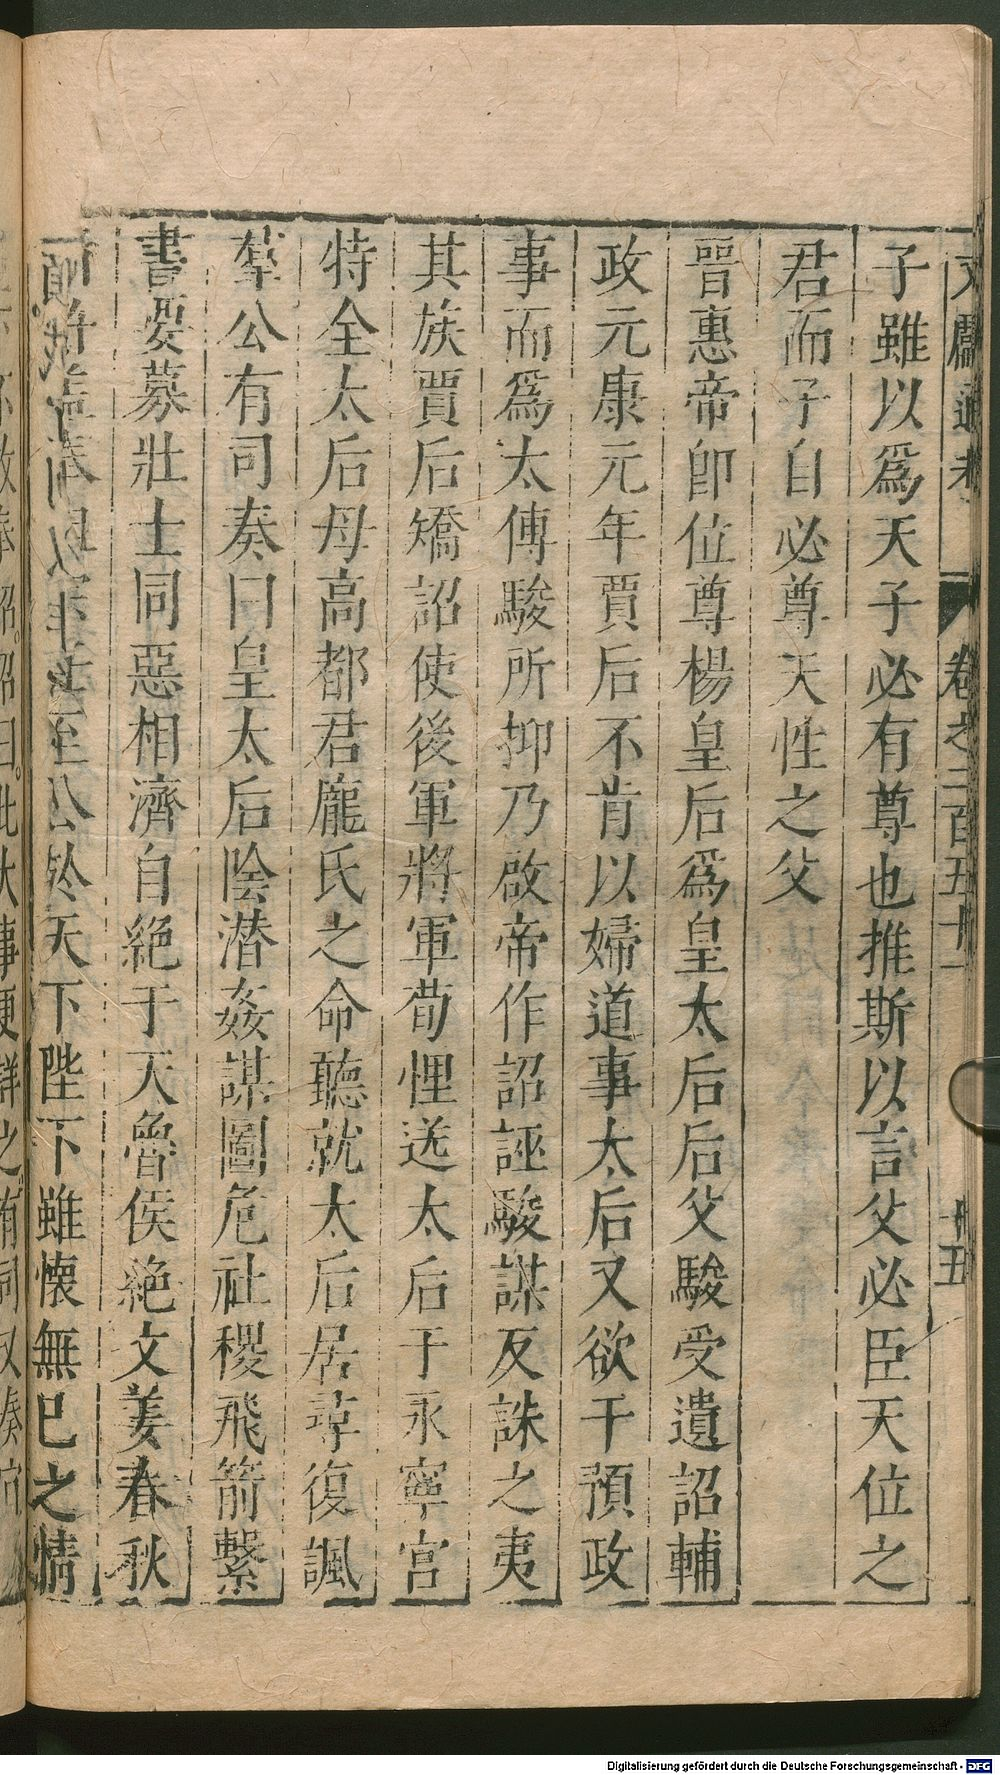 文獻通考 卷之二百五十一 十五
子雖以爲天子必有尊也推斯以言父必臣天位之
君而子自必尊天性之父
晉惠帝卽位尊楊皇后爲皇太后后父駿受遺詔輔
政元康元年賈后不肯以婦道事太后又欲干預政
事而爲太傅駿所抑乃啟帝作詔誣駿謀反誅之夷
其族賈后矯詔使後軍將軍荀悝送太后于永寧宮
特全太后母高都君龐氏之命聽就太后居尋復諷
羣公有司奏曰皇太后陰潜姦謀圖危社稷飛箭繫
書要募壯士同惡相濟自絕于天魯侯絕文姜春秋
至公於天下陛下雖懷無已之情
詔曰此大事更詳之有司又奏宜
Digitalisierung gefördert durch die Deutsche Forschungsgemeinschaft - DFG